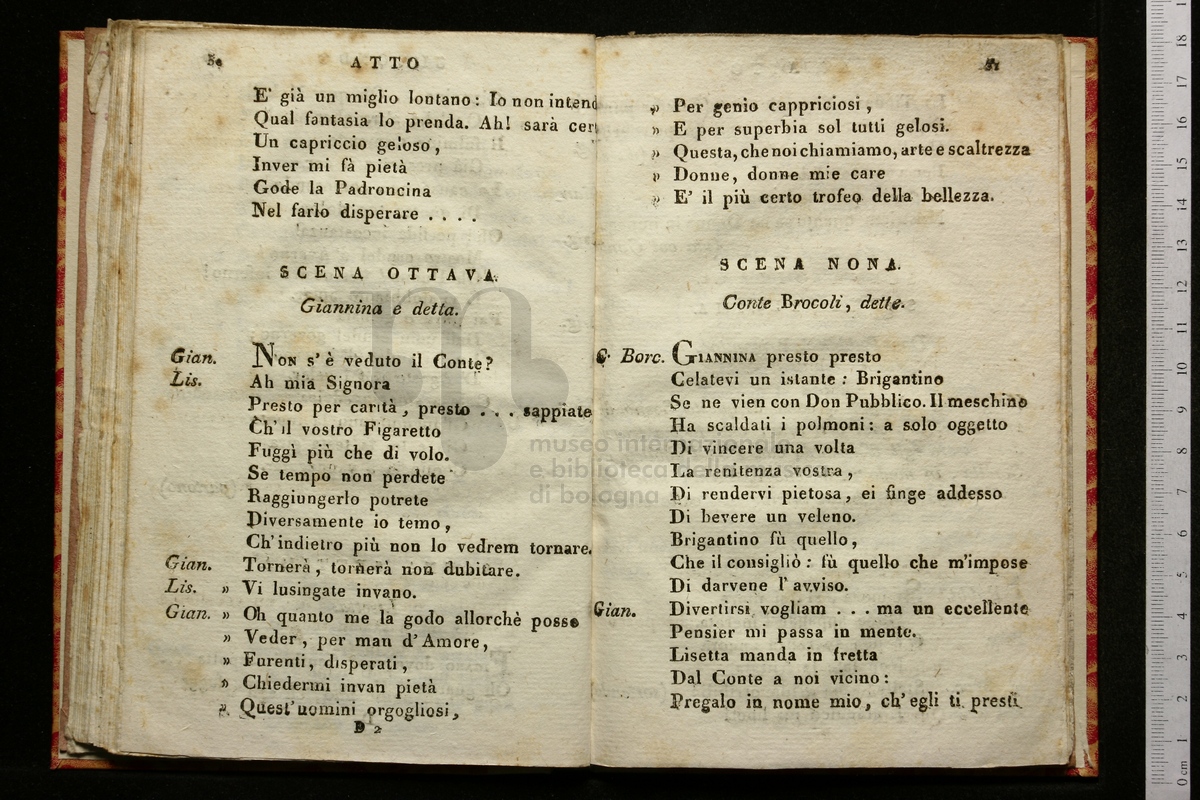 50 ATTO
E' già un miglio lontano: Io non intend
Qual fantasia lo prenda. Ah! sarà cert
Un capriccio geloso,
Inver mi fà pietà
Gode la Padroncina
Nel farlo disperare . . . .
SCENA OTTAVA.
Giannina e detta.
Gian. NON s'è veduto il Conte?
Lis. Ah mia Signora
Presto per carità, presto . . . sappiate
Ch'il vostro Figaretto
Fuggì più che di volo.
Se tempo non perdete
Raggiungerlo potrete
Diversamente io temo,
Ch'indietro più non lo vedrem tornare.
Gian. Tornerà, tornerà non dubitare.
Lis. » Vi lusingate invano.
Gian. » Oh quanto me la godo allorchè posso
» Veder, per man d'Amore,
» Furenti, disperati,
» Chiedermi invan pietà
» Quest'uomini orgogliosi,
D 2
51
» Per genio cappriciosi,
» E per superbia sol tutti gelosi.
» Questa, che noi chiamiamo, arte e scaltrezza
» Donne, donne mie care
» E' il più certo trofeo della bellezza.
SCENA NONA.
Conte Brocoli, dette.
C. Borc. GIANNINA presto presto
Celatevi un istante: Brigantino
Se ne vien con Don Pubblico. Il meschino
Ha scaldati i polmoni: a solo oggetto
Di vincere una volta
La renitenza vostra,
Di rendervi pietosa, ei finge addesso
Di bevere un veleno.
Brigantino fù quello,
Che il consigliò: fù quello che m'impose
Di darvene l'avviso.
Gian. Divertirsi vogliam . . . ma un eccellente
Pensier mi passa in mente.
Lisetta manda in fretta
Dal Conte a noi vicino:
Pregalo in nome mio, ch'egli ti presti
museo internazionale
e biblioteca della musica
di bologna